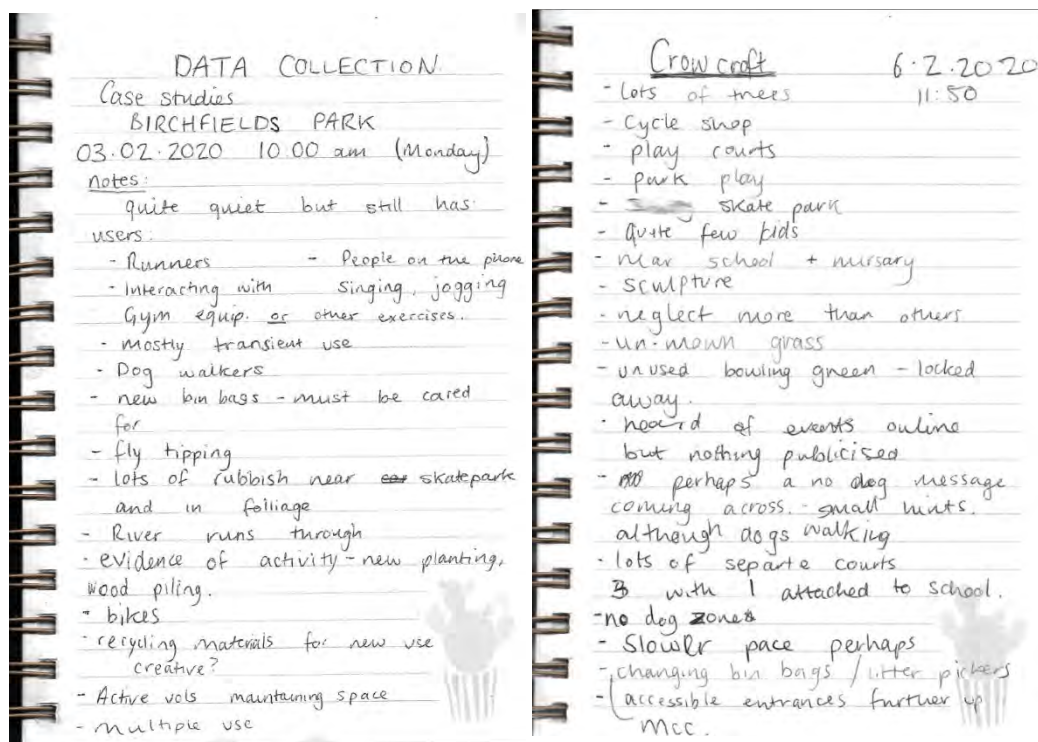 DATA COLLECTION.
Case studies
BIRCHFIELDS PARK
03.02.2020 10.00 am (Monday)
notes:
quite quiet but still has
users:
- Runners - People on the phone
- Interacting with singing, jogging
Gym equip. or other exercises.
- mostly transient use
- Dog walkers
- new bin bags - must be cared
for
- fly tipping
- lots of rubbish near skatepark
and in folliage
- River runs through
- evidence of activity - new planting,
wood piling.
- bikes
- recycling materials for new use
creative?
- Active vols maintaining space
- multiple use
Crowcroft 6.2.2020
- lots of trees 11:50
- Cycle shop
- play courts
- park play
- skate park
- quite few kids
- near school + nursary
- sculpture
- neglect more than others
- un-mown grass
- unused bowling green - locked
away.
- heard of events online
but nothing publicised
- perhaps a no dog message
coming across. - small hints.
although dogs walking
- lots of separte courts
3 with 1 attached to school.
- no dog zones
- Slower pace perhaps
- changing bin bags / litter pickers
- accessible entrances further up
Mcc.